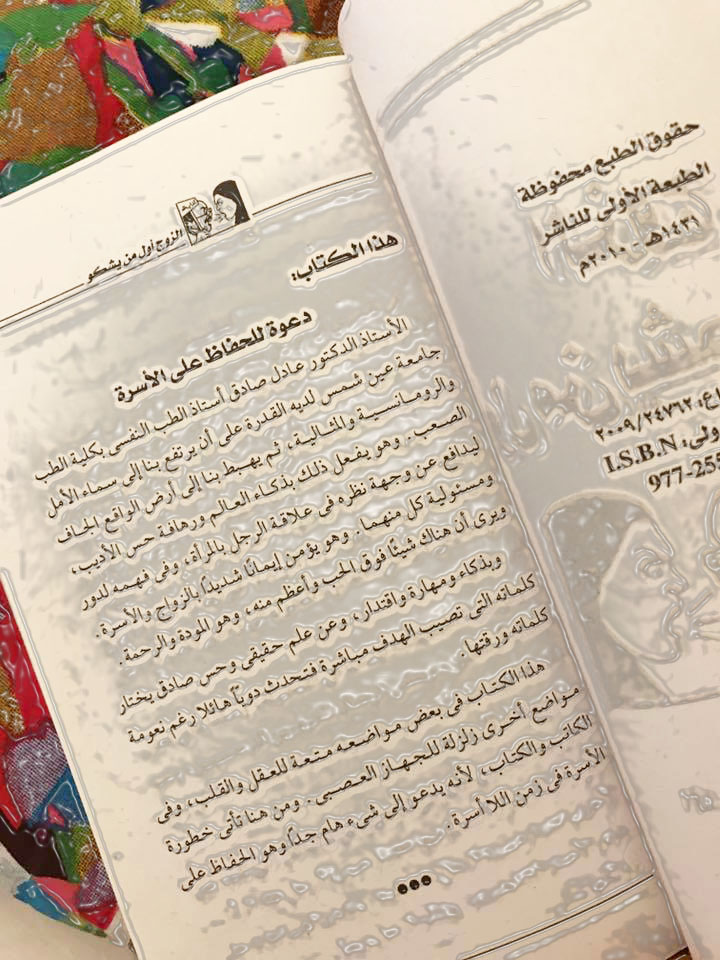 حقوق الطبع محفوظة
الطبعة الأولى للناشر
١٤٣١هـ - ٢٠١٠م
٢٠٠٩/٢٤٧٦٢
I.S.B.N
977-255
الزوج أول من يشكو
هذا الكتاب:
دعوة للحفاظ على الأسرة
الأستاذ الدكتور عادل صادق أستاذ الطب النفسى بكلية الطب
جامعة عين شمس لديه القدرة على أن يرتفع بنا إلى سماء الأمل
والرومانسية والمثالية، ثم يهبط بنا إلى أرض الواقع الجاف
الصعب. وهو يفعل ذلك بذكاء العالم ورهافة حس الأديب،
ليدافع عن وجهة نظره فى علاقة الرجل بالمرأة، وفى فهمه لدور
ومسئولية كل منهما. وهو يؤمن إيمانًا شديدًا بالزواج والأسرة.
ويرى أن هناك شيئًا فوق الحب وأعظم منه، وهو المودة والرحمة.
وبذكاء ومهارة واقتدار، وعن علم حقيقى وحس صادق يختار
كلماته التى تصيب الهدف مباشرة فتحدث دويًا هائلا رغم نعومة
كلماته ورقتها.
هذا الكتاب فى بعض مواضعه متعة للعقل والقلب، وفى
مواضع أخرى زلزلة للجهاز العصبى. ومن هنا تأتى خطورة
الكاتب والكتاب، لأنه يدعو إلى شىء هام جدًا وهو الحفاظ على
الأسرة فى زمن اللا أسرة.